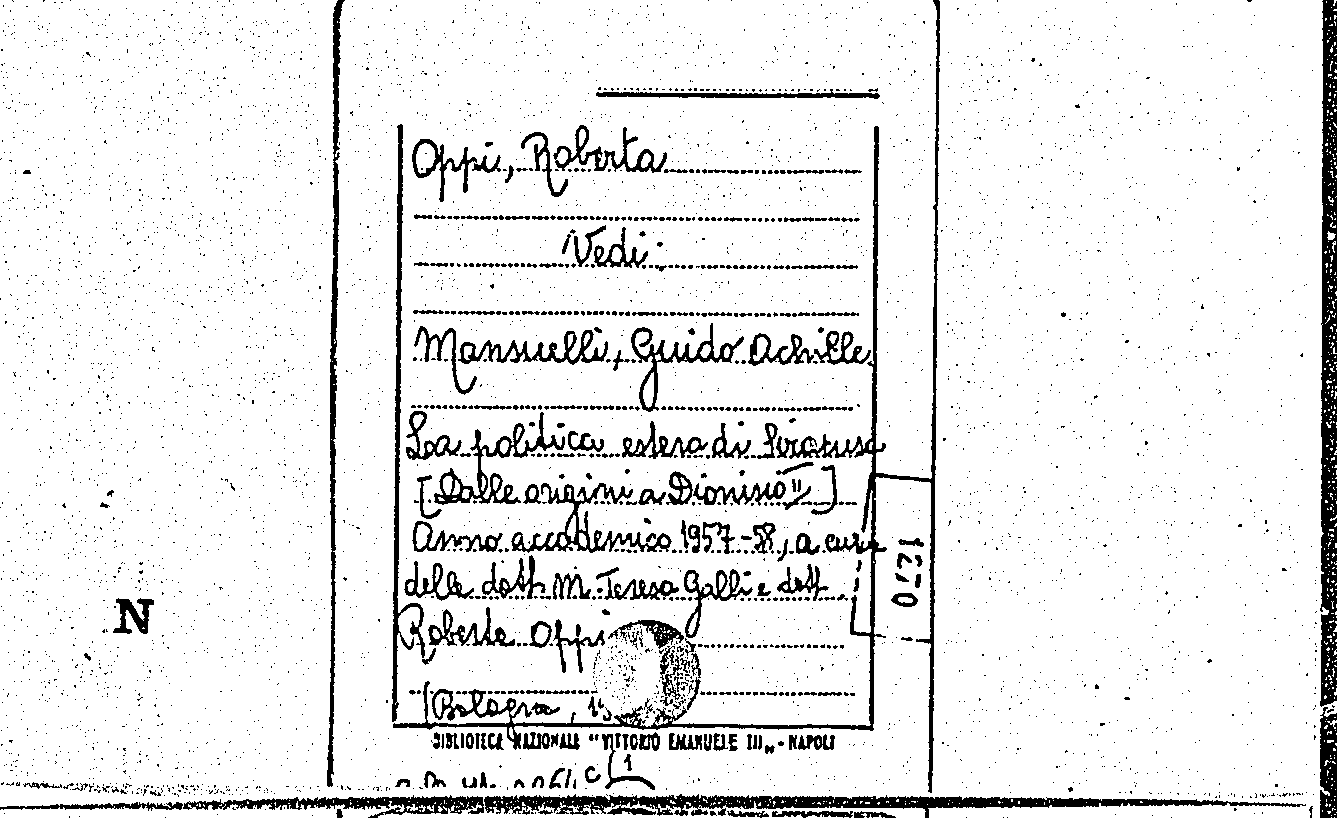 Oppi, Roberta
Vedi:
Mansuelli, Guido Achille.
La politica estera di Siracusa
[Dalle origini a Dionisio II]
Anno accademico 1957-58, a cura
delle dott. M. Teresa Galli e dott.
Roberta Oppi
(Bologna,
BIBLIOTECA NAZIONALE "VITTORIO EMANUELE III„ - NAPOLI
1270
N